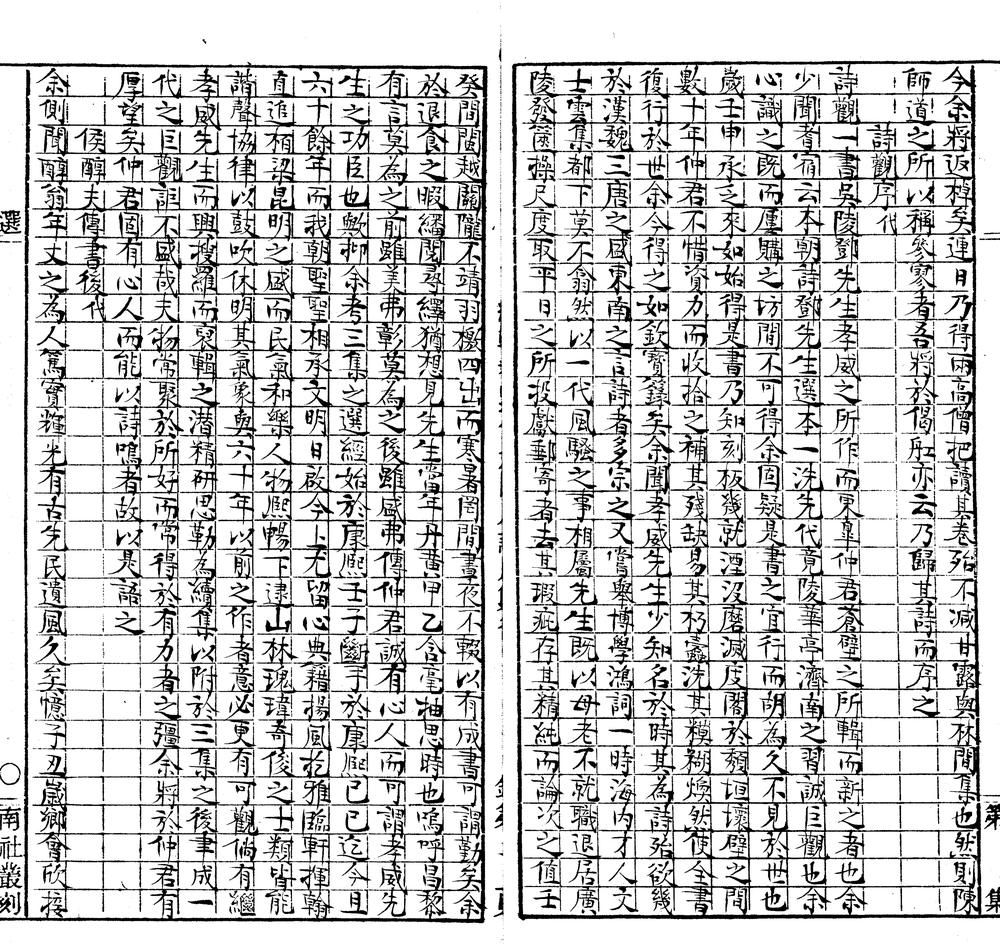 今余將返棹矣連日乃得兩高僧把讀其卷殆不减甘露與林間集也然則陳
師道之所以稱參寥者吾將於偈舡亦云乃歸其詩而序之
詩觀序代
詩觀一書吳陵鄧先生孝威之所作而東皐仲君蒼壁之所輯而新之者也余
少聞耆宿云本朝詩鄧先生選本一洗先代竟陵華亭濟南之習誠巨觀也余
心識之既而屢購之坊間不可得余固疑是書之宜行而胡為久不見於世也
歲壬申承乏來如始得是書乃知刻板幾就湮沒磨滅庋閣於頹垣壞壁之間
數十年仲君不惜資力而收拾之補其殘缺易其朽蠹洗其糢糊煥然使全書
復行於世余今得之如欽寶籙矣余聞孝威先生少知名於時其為詩殆欲幾
於漢魏三唐之盛東南之言詩者多宗之又嘗舉博學鴻詞一時海内才人文
士雲集都下莫不翕然以一代風騷之事相屬先生既以母老不就職退居廣
陵發篋操尺度取平日之所投獻郵寄者去其瑕疵存其精純而論次之值壬
癸間閩越關隴不靖羽檄四出而寒暑罔間晝夜不輟以有成書可謂勤矣余
於退食之暇繙閱尋繹猶想見先生當年丹黄甲乙含毫抽思時也嗚呼昌黎
有言莫為之前雖美弗彰莫為之後雖盛弗傳仲君誠有心人而可謂孝威先
生之功臣也歟抑余考三集之選經始於康熙壬子斷手於康熙已巳迄今且
六十餘年而我朝聖聖相承文明日啟今上尤留心典籍揚風扢雅臨軒揮翰
直追栢梁昆明之盛而民氣和樂人物熙暢下逮山林瑰瑋奇俊之士類皆能
諧聲協律以鼓吹休明其氣象與六十年以前之作者意必更有可觀倘有繼
孝威先生而興搜羅而裒輯之潛精研思勒為續集以附於三集之後書成一
代之巨觀詎不盛哉夫物常聚於所好而常得於有力者之彊余將於仲君有
厚望矣仲君固有心人而能以詩鳴者故以是諗之
侯醇夫傳書後代
余側聞醇翁年丈之為人篤實輝光有古先民遺風久矣憶子丑歲鄉會欣接
選
南社叢刻
第
集